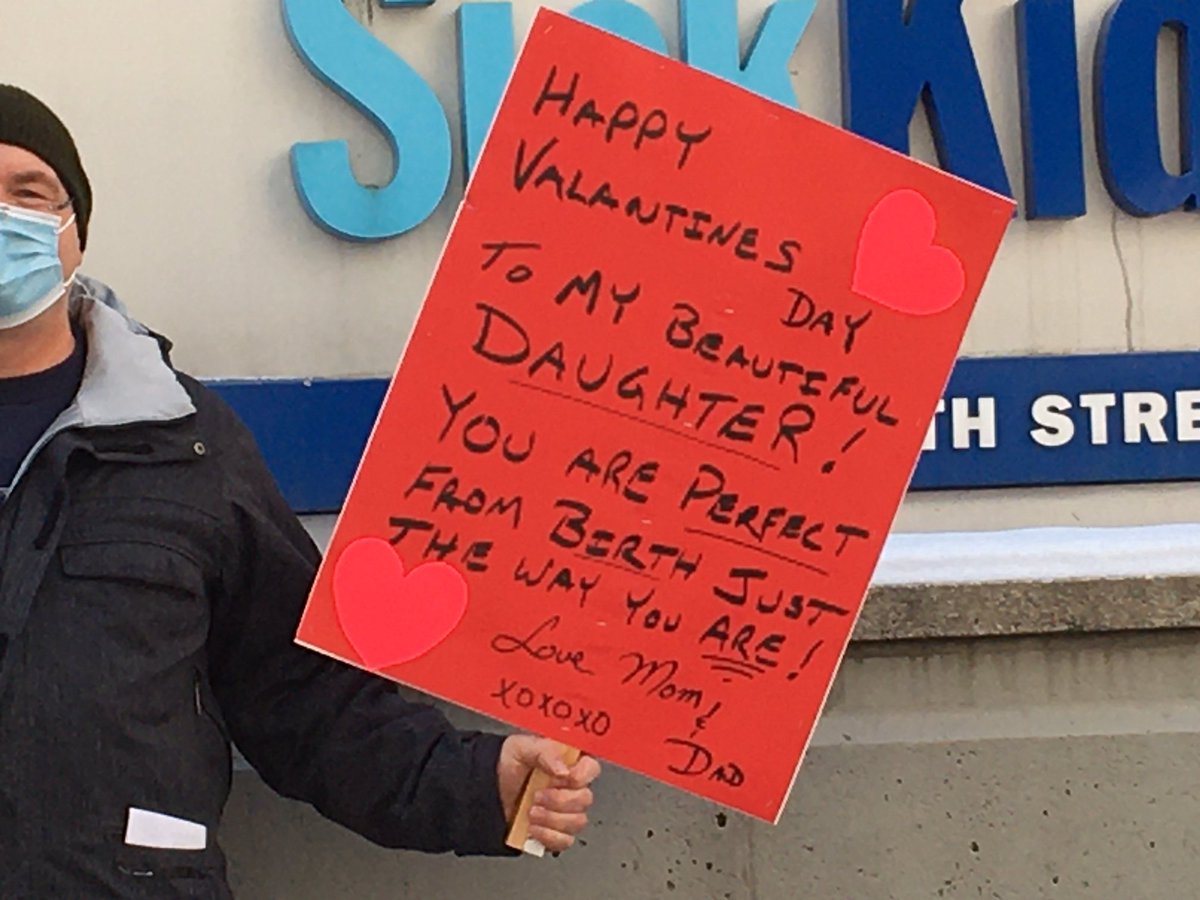 SickKid
TH STRE
HAPPY
VALANTINES
DAY
TO MY BEAUTIFUL
DAUGHTER!
YOU ARE PERFECT
FROM BIRTH JUST
THE WAY YOU ARE!
Love Mom &
XOXOXO
DAD